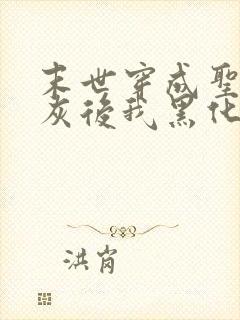 末世穿成聖
灰後我黑化
洪肖